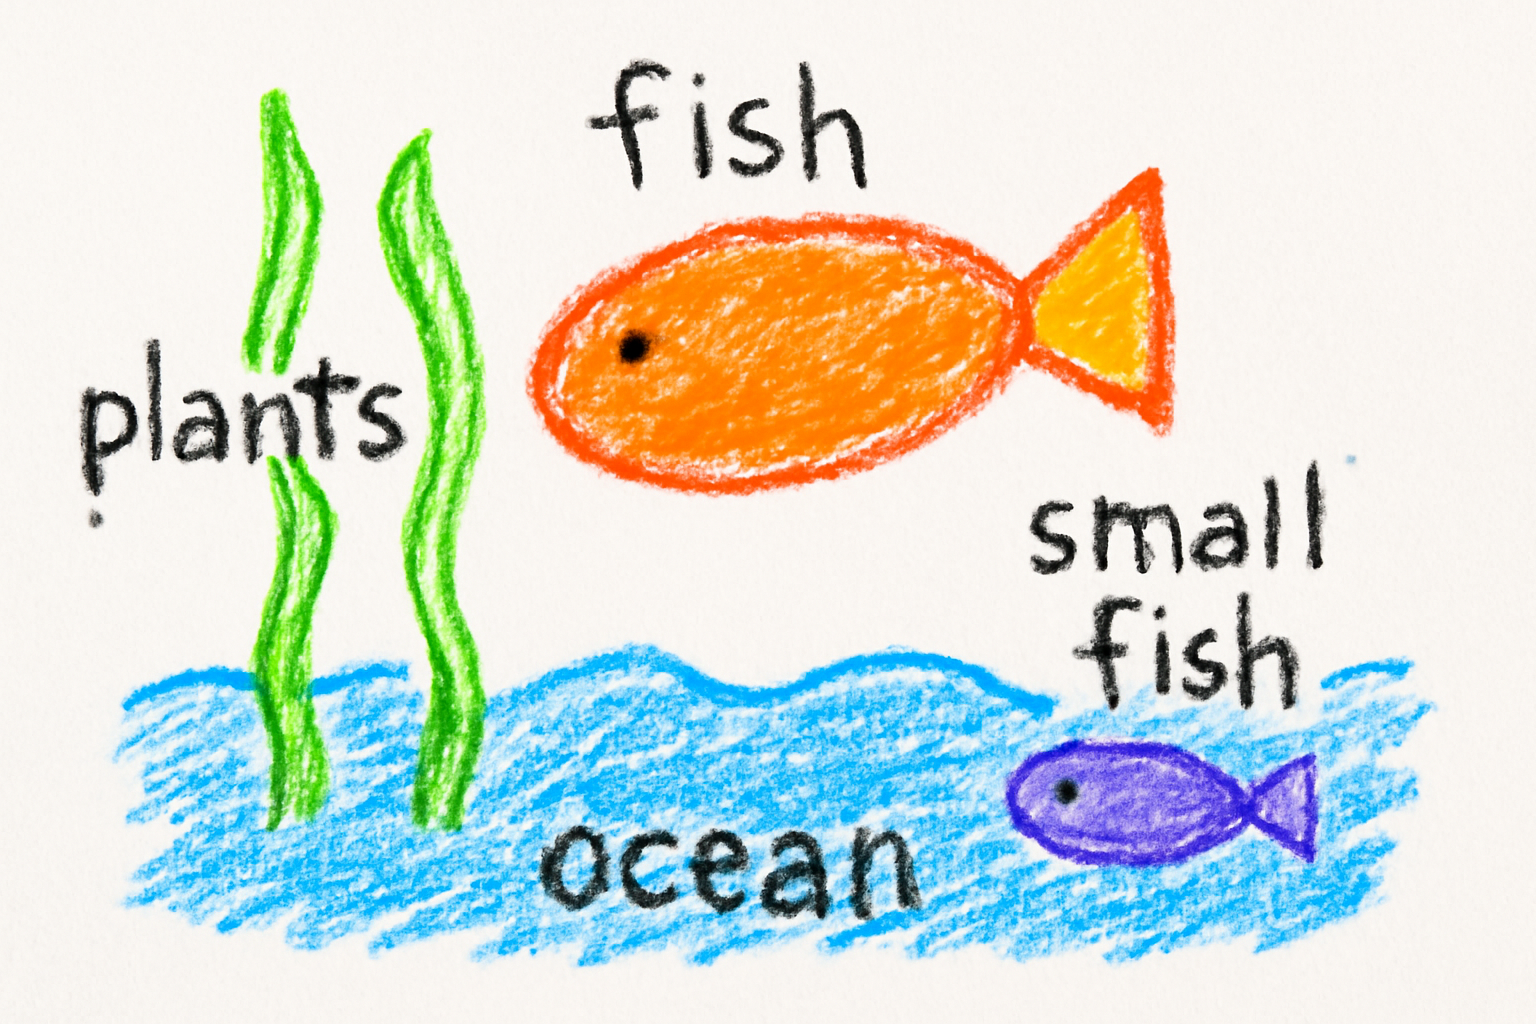 fish
plants
small
fish
ocean